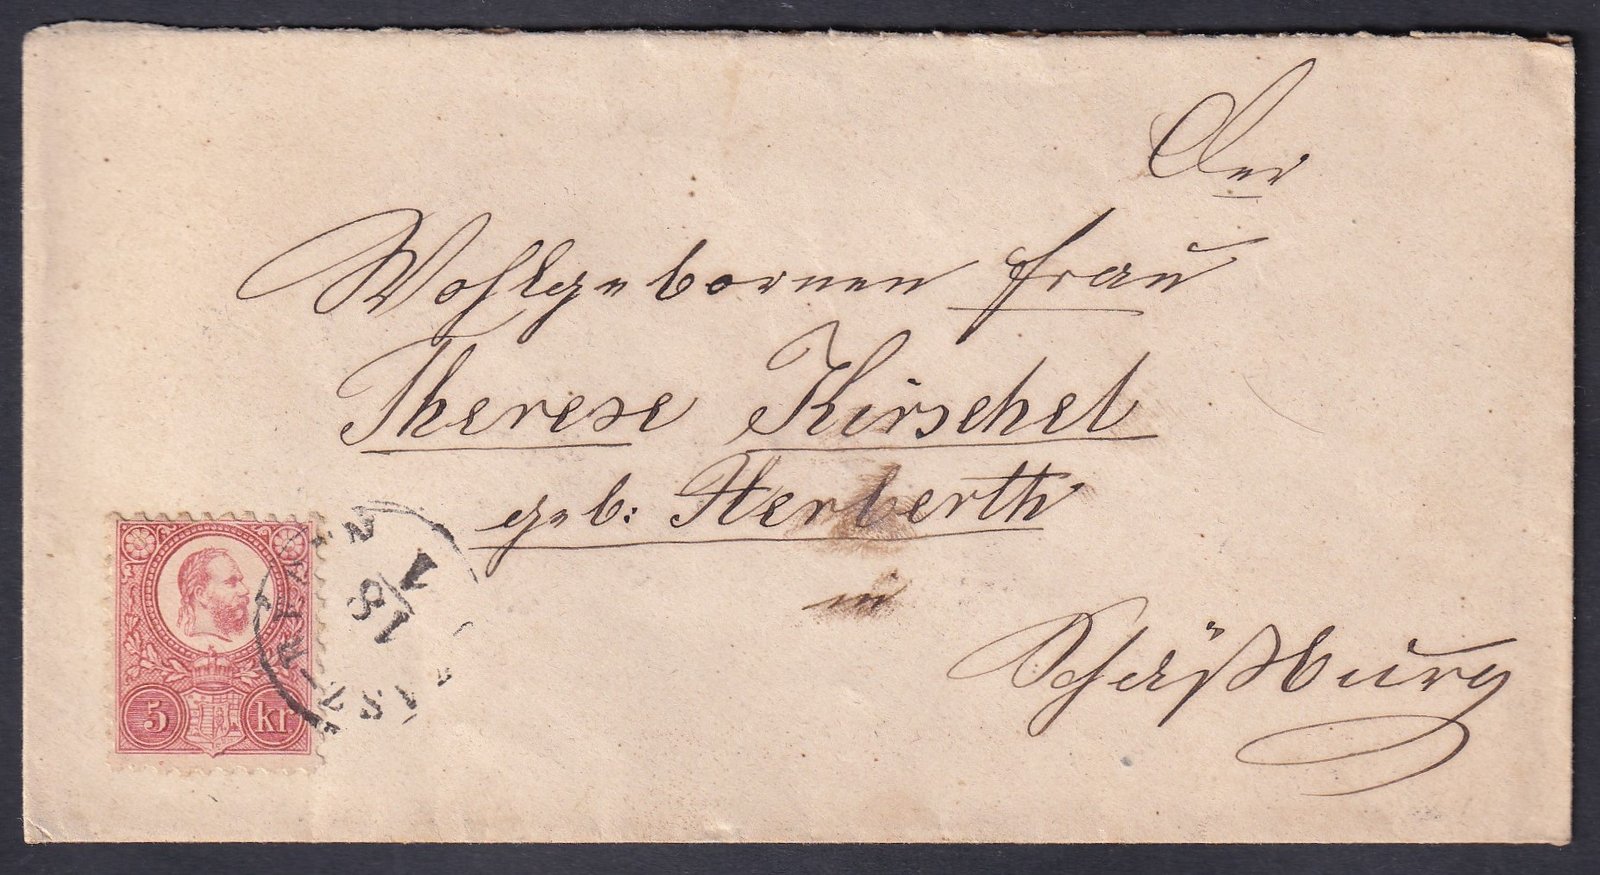 Der
Wohlgebornen Frau
Therese Kirschel
geb: Herberth
in
Schäßburg
5 kr
18
1